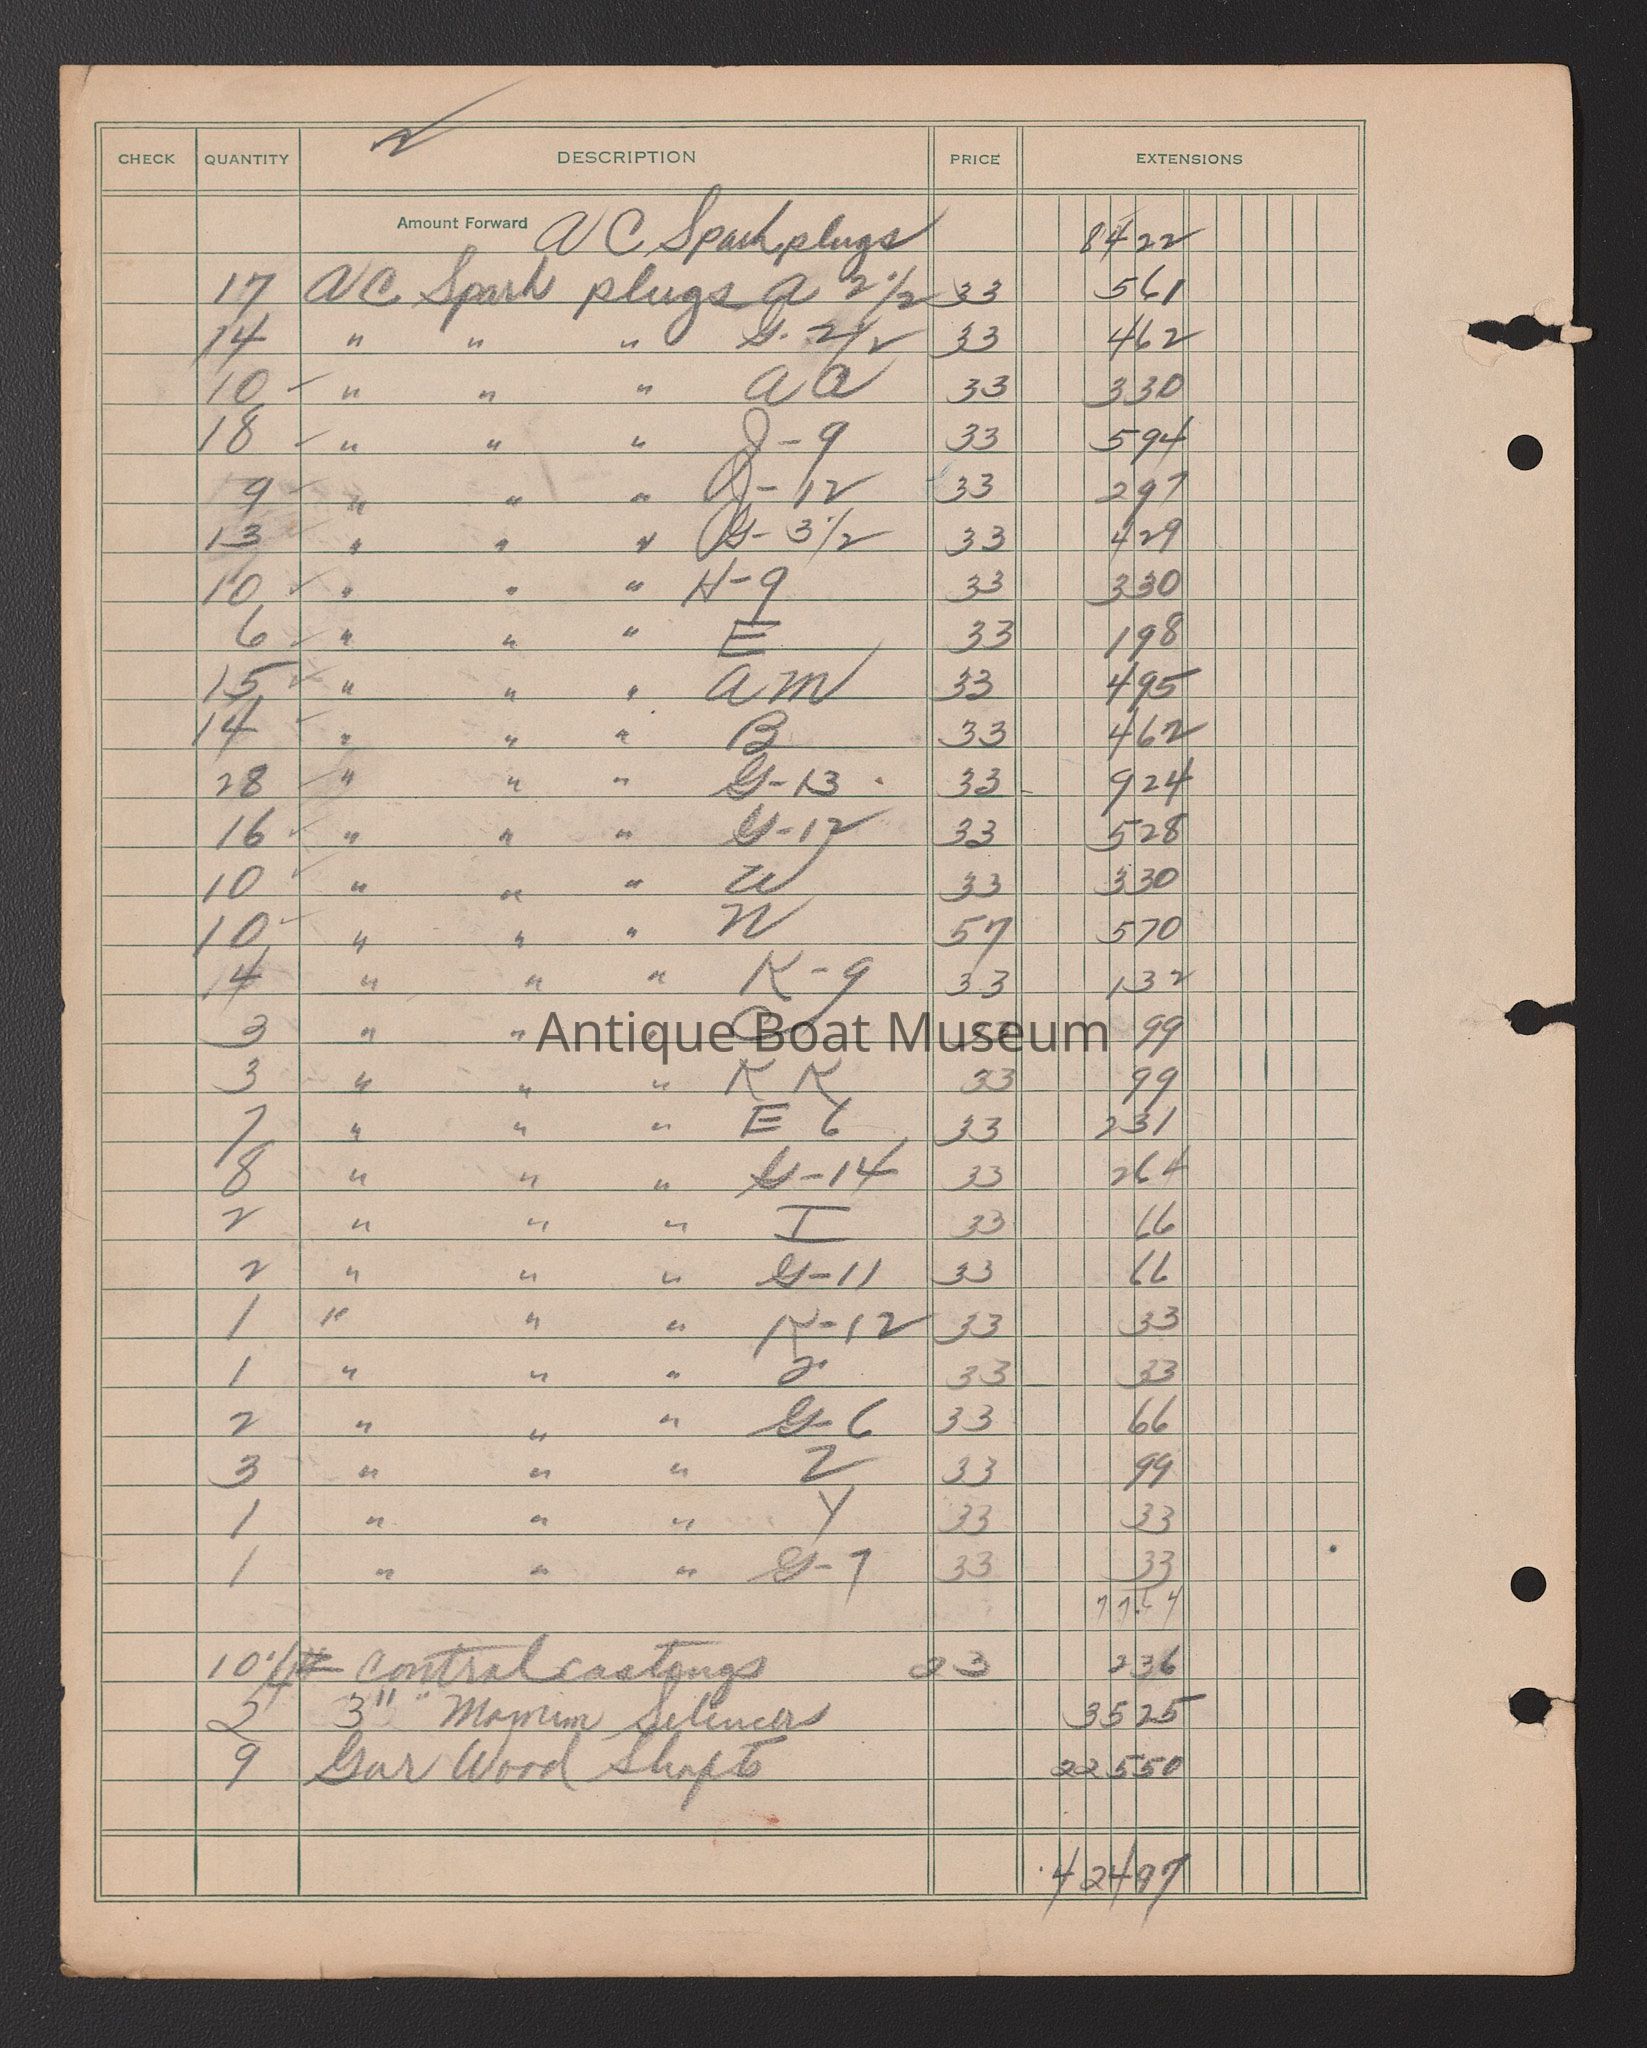 CHECK QUANTITY DESCRIPTION PRICE EXTENSIONS
Amount Forward AC Spark plugs 84 22
17 AC Spark plugs A 2 1/2 33 5 61
14 " " " G. 2 1/2 33 4 62
10 " " " AA 33 3 30
18 " " " J-9 33 5 94
9 " " " J-12 33 2 97
13 " " " G-3 1/2 33 4 29
10 " " " H-9 33 3 30
6 " " " E 33 1 98
15 " " " AM 33 4 95
14 " " " B 33 4 62
28 " " " G-13 33 9 24
16 " " " G-12 33 5 28
10 " " " W 33 3 30
10 " " " N 57 5 70
4 " " " K-9 33 1 32
3 " " " 33 99
Antique Boat Museum
3 " " " KK 33 99
7 " " " E 6 33 2 31
8 " " " G-14 33 2 64
2 " " " I 33 66
2 " " " G-11 33 66
1 " " " K-12 33 33
1 " " " 33 33
2 " " " G-6 33 66
3 " " " Z 33 99
1 " " " Y 33 33
1 " " " G-7 33 33
10 1/4 # Control castings 23 2 36
2 3" Maxim Silencers 35 25
9 Gar Wood Shafts 225 50
424 97